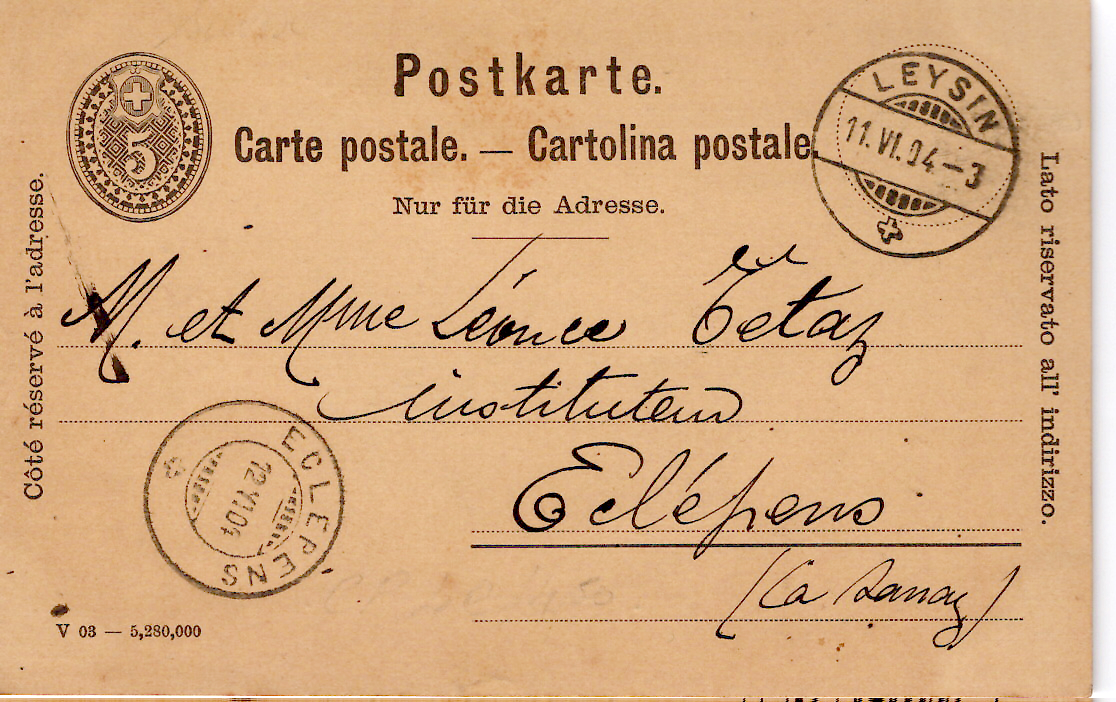 Postkarte.
5
Carte postale. — Cartolina postale
Nur für die Adresse.
LEYSIN
11.VI.04-3
Côté réservé à l'adresse.
Lato riservato all' indirizzo.
M. et Mme Léonce Tétaz
instituteur
Eclépens
(La Sarraz)
ECLEPENS
12 VI 04
V 03 — 5,280,000